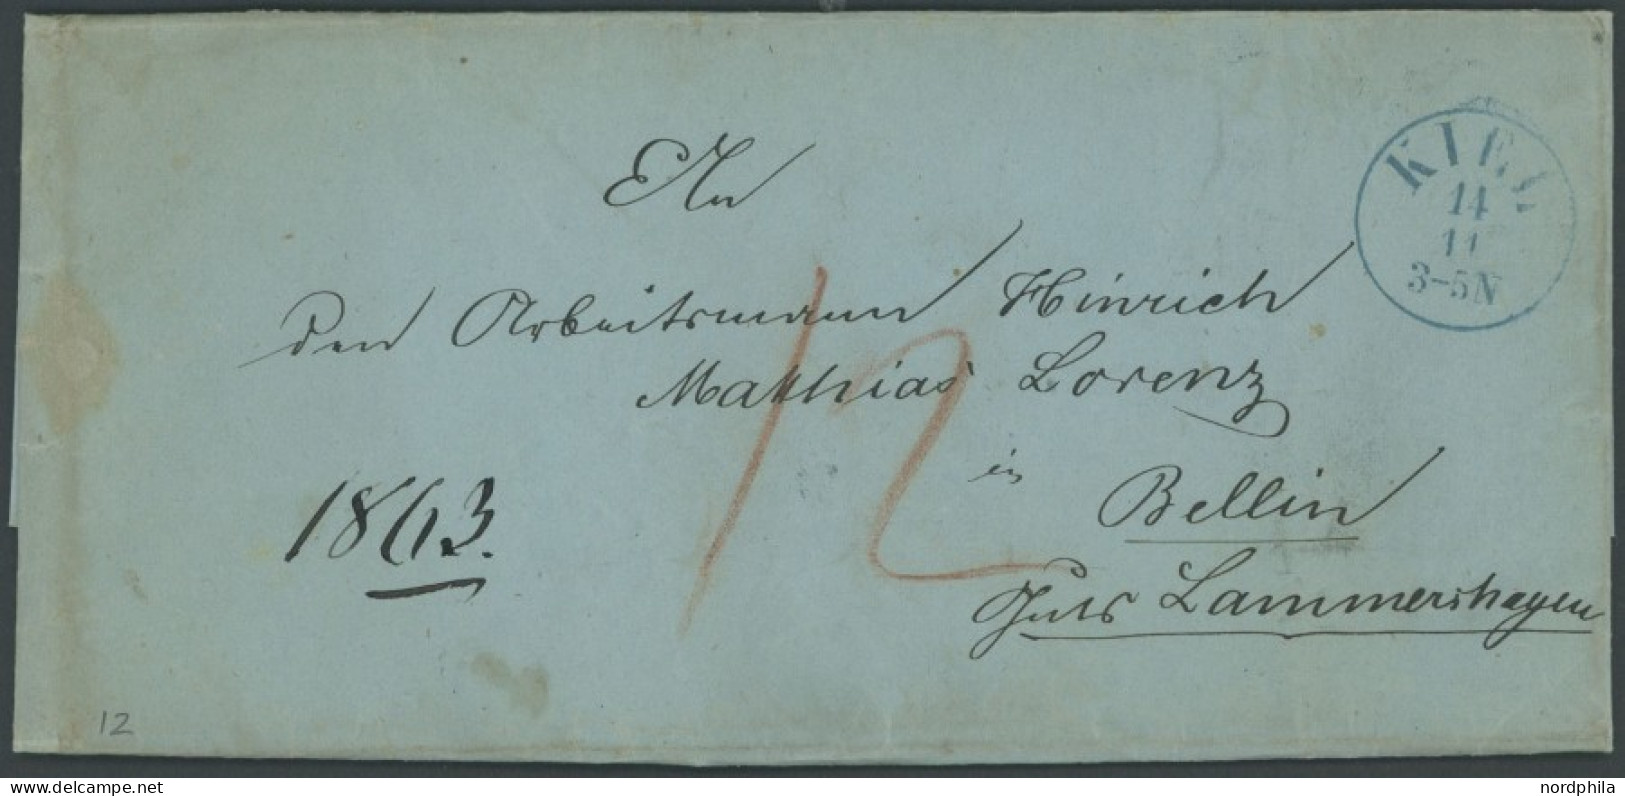 KIEL
14
11
3-5N
An
den Arbeitsmann Hinrich
Matthias Lorenz
in
Bellin
Guts Lammershagen
1863.
12
12
nordphila